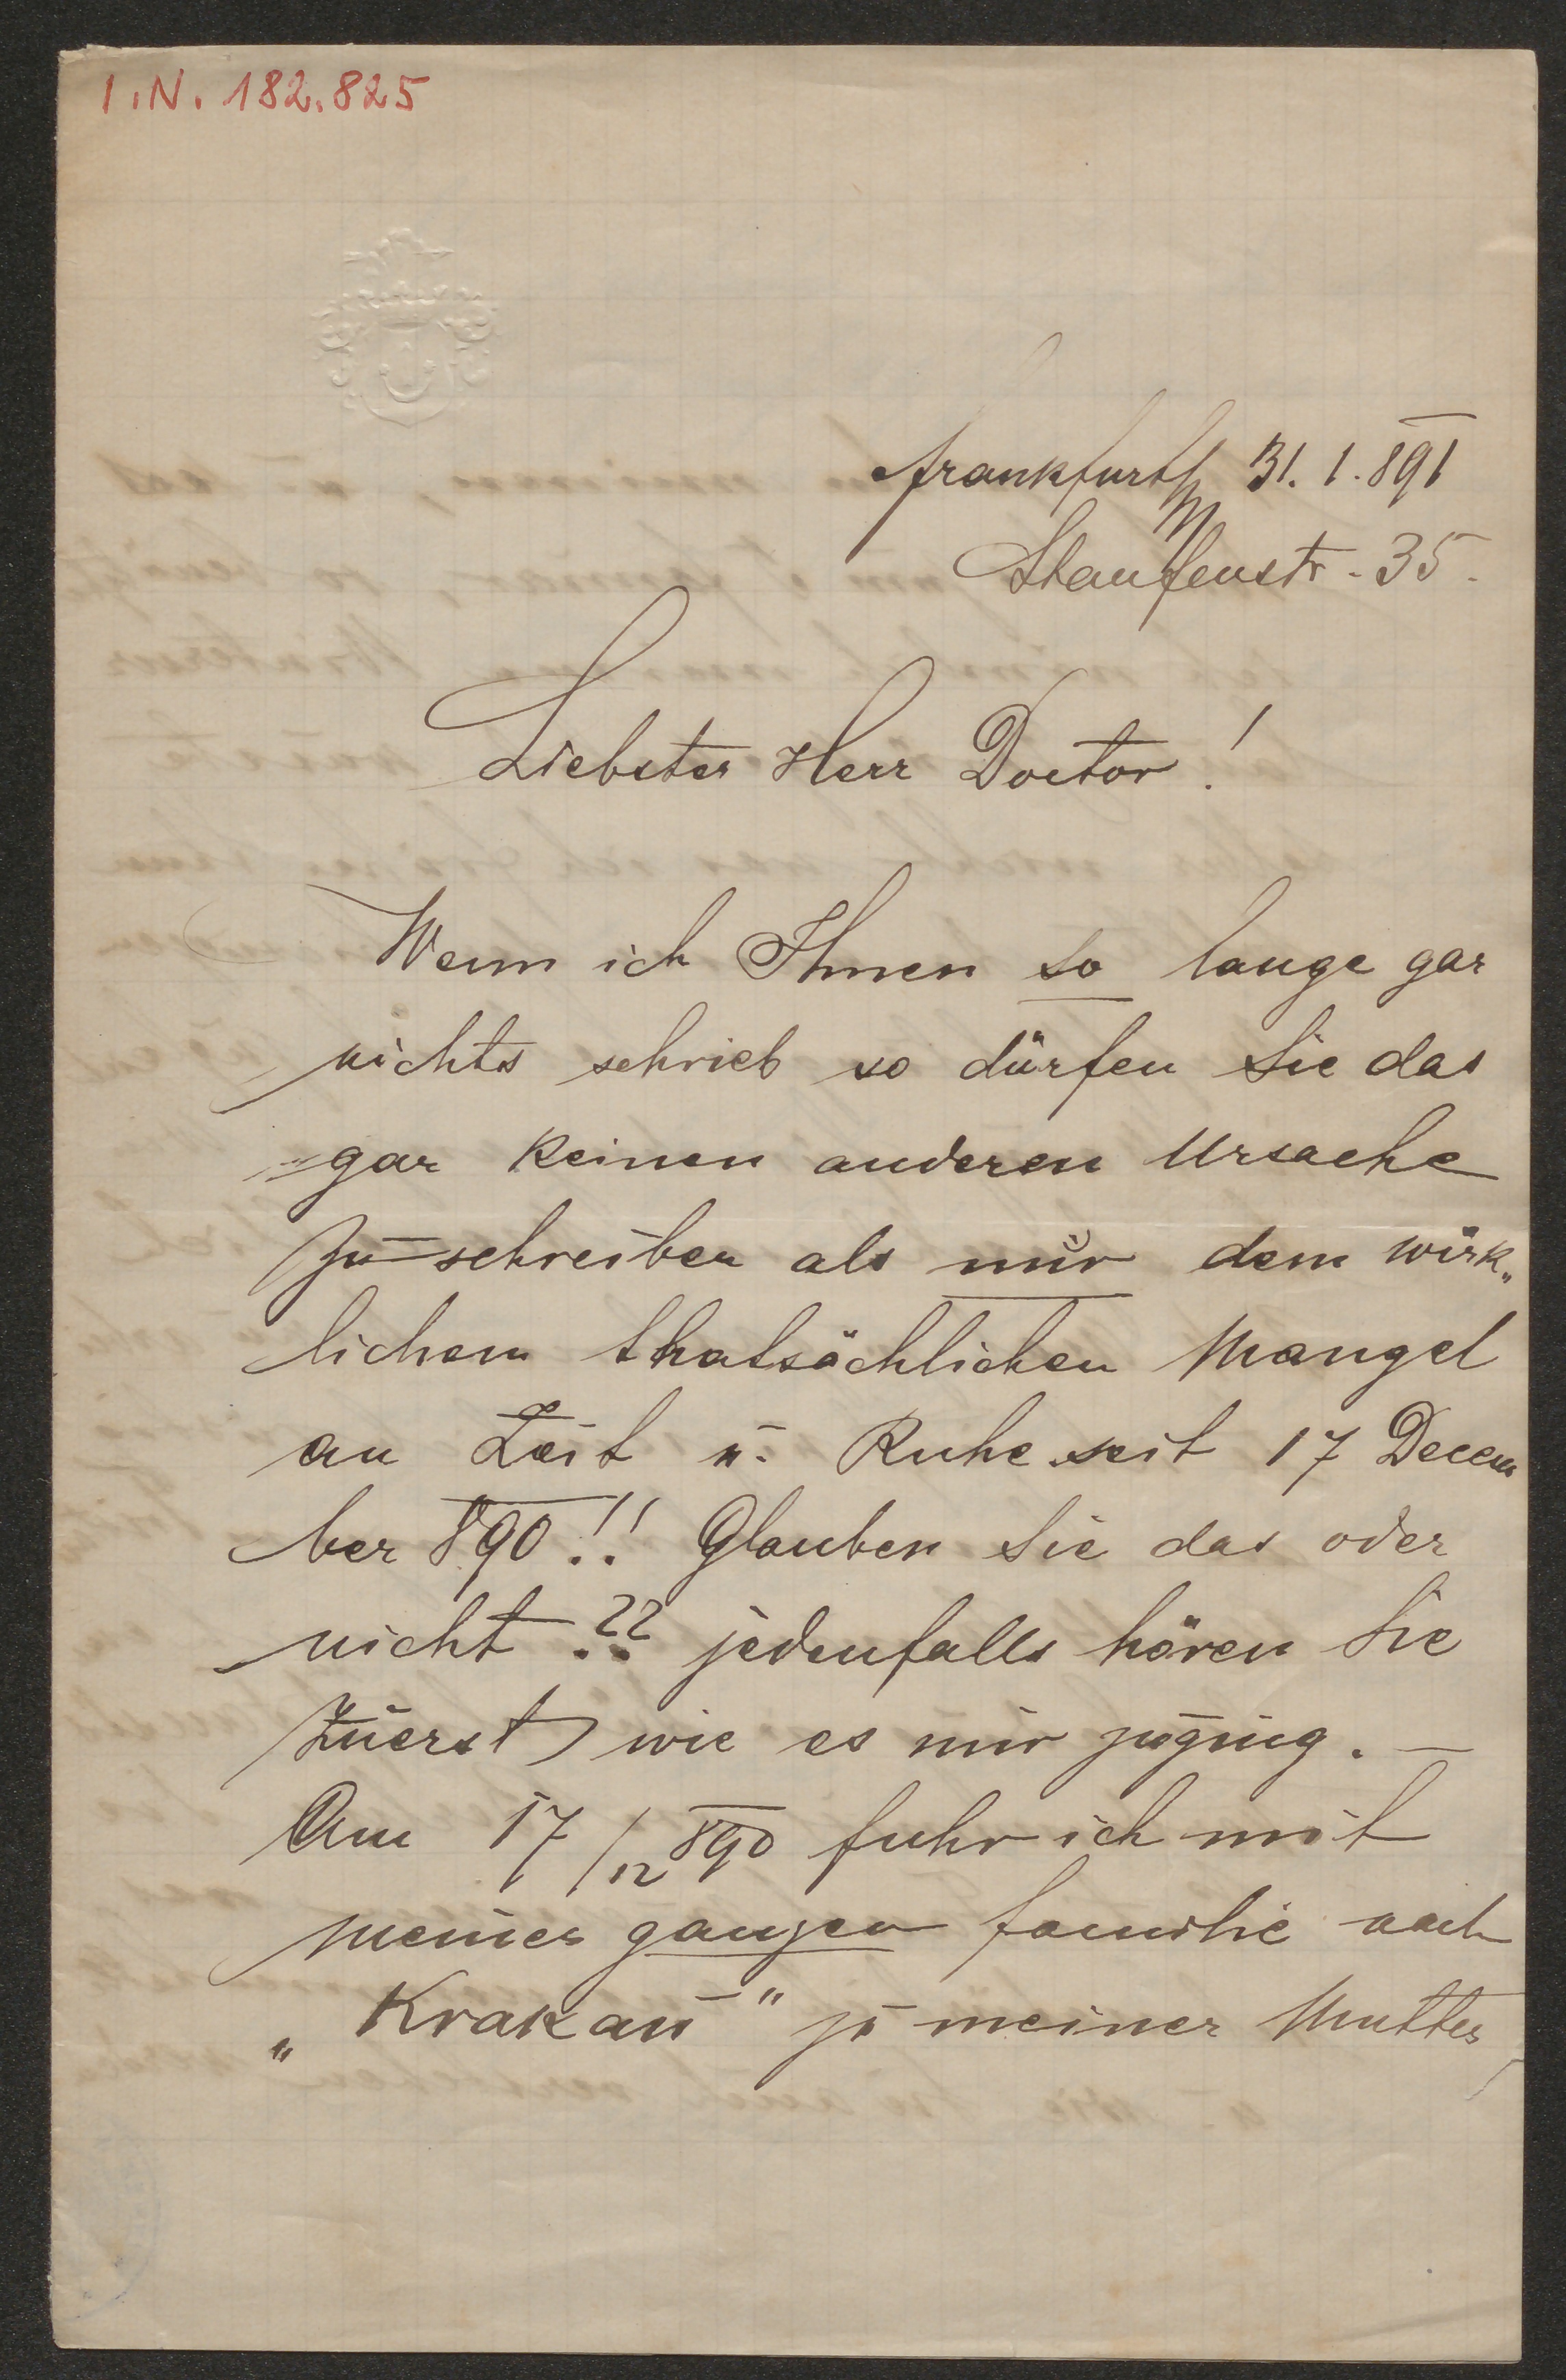 I.N. 182.825
Frankfurt/M 31.1.891
Staufenstr. 35.
Liebster Herr Doctor!
Wenn ich Ihnen so lange gar
nichts schrieb so dürfen Sie das
gar keinen anderen Ursache
zu schreiben als nur dem wirk„
lichem thatsächlichen Mangel
an Zeit u. Ruhe seit 17 Decem
ber 890!! Glauben Sie das oder
nicht?? jedenfalls hören Sie
zuerst wie es mir zuging. —
Am 17/12 890 fuhr ich mit
meiner ganzen Familie nach
„Krakau" zu meiner Mutter,